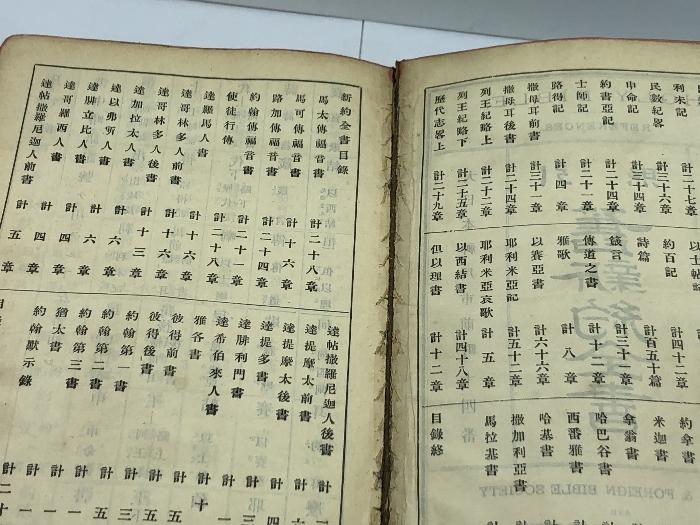 計二十七章
列未記
民數紀畧 計三十六章
申命記 計三十四章
約書亞記 計二十四章
士師記 計二十一章
路得記 計四章
撒母耳前書 計三十一章
撒母耳後書 計二十四章
列王紀略上 計二十二章
列王紀略下 計二十五章
歷代志畧上 計二十九章
以士帖記
約百記 計四十二章
詩篇 計百五十篇
箴言 計三十一章
傳道之書 計十二章
雅歌 計八章
以賽亞書 計六十六章
耶利米亞記 計五十二章
耶利米亞哀歌 計五章
以西結書 計四十八章
但以理書 計十二章
約拿書
米迦書
拿翁書
哈巴谷書
西番雅書
哈基書
撒加利亞書
馬拉基書
目錄終
新約全書目錄
馬太傳福音書 計二十八章
馬可傳福音書 計十六章
路加傳福音書 計二十四章
約翰傳福音書 計二十一章
使徒行傳 計二十八章
達羅馬人書 計十六章
達哥林多人前書 計十六章
達哥林多人後書 計十三章
達加拉太人書 計六章
達以弗所人書 計六章
達腓立比人書 計四章
達哥羅西人書 計四章
達帖撒羅尼迦人前書 計五章
達帖撒羅尼迦人後書 計
達提摩太前書 計
達提摩太後書 計
達提多書 計
達腓利門書 計
達希伯來人書 計十
雅各書 計五
彼得前書 計五
彼得後書 計三
約翰第一書 計五
約翰第二書 計一
約翰第三書 計一
猶太書 計一
約翰默示錄 計二十